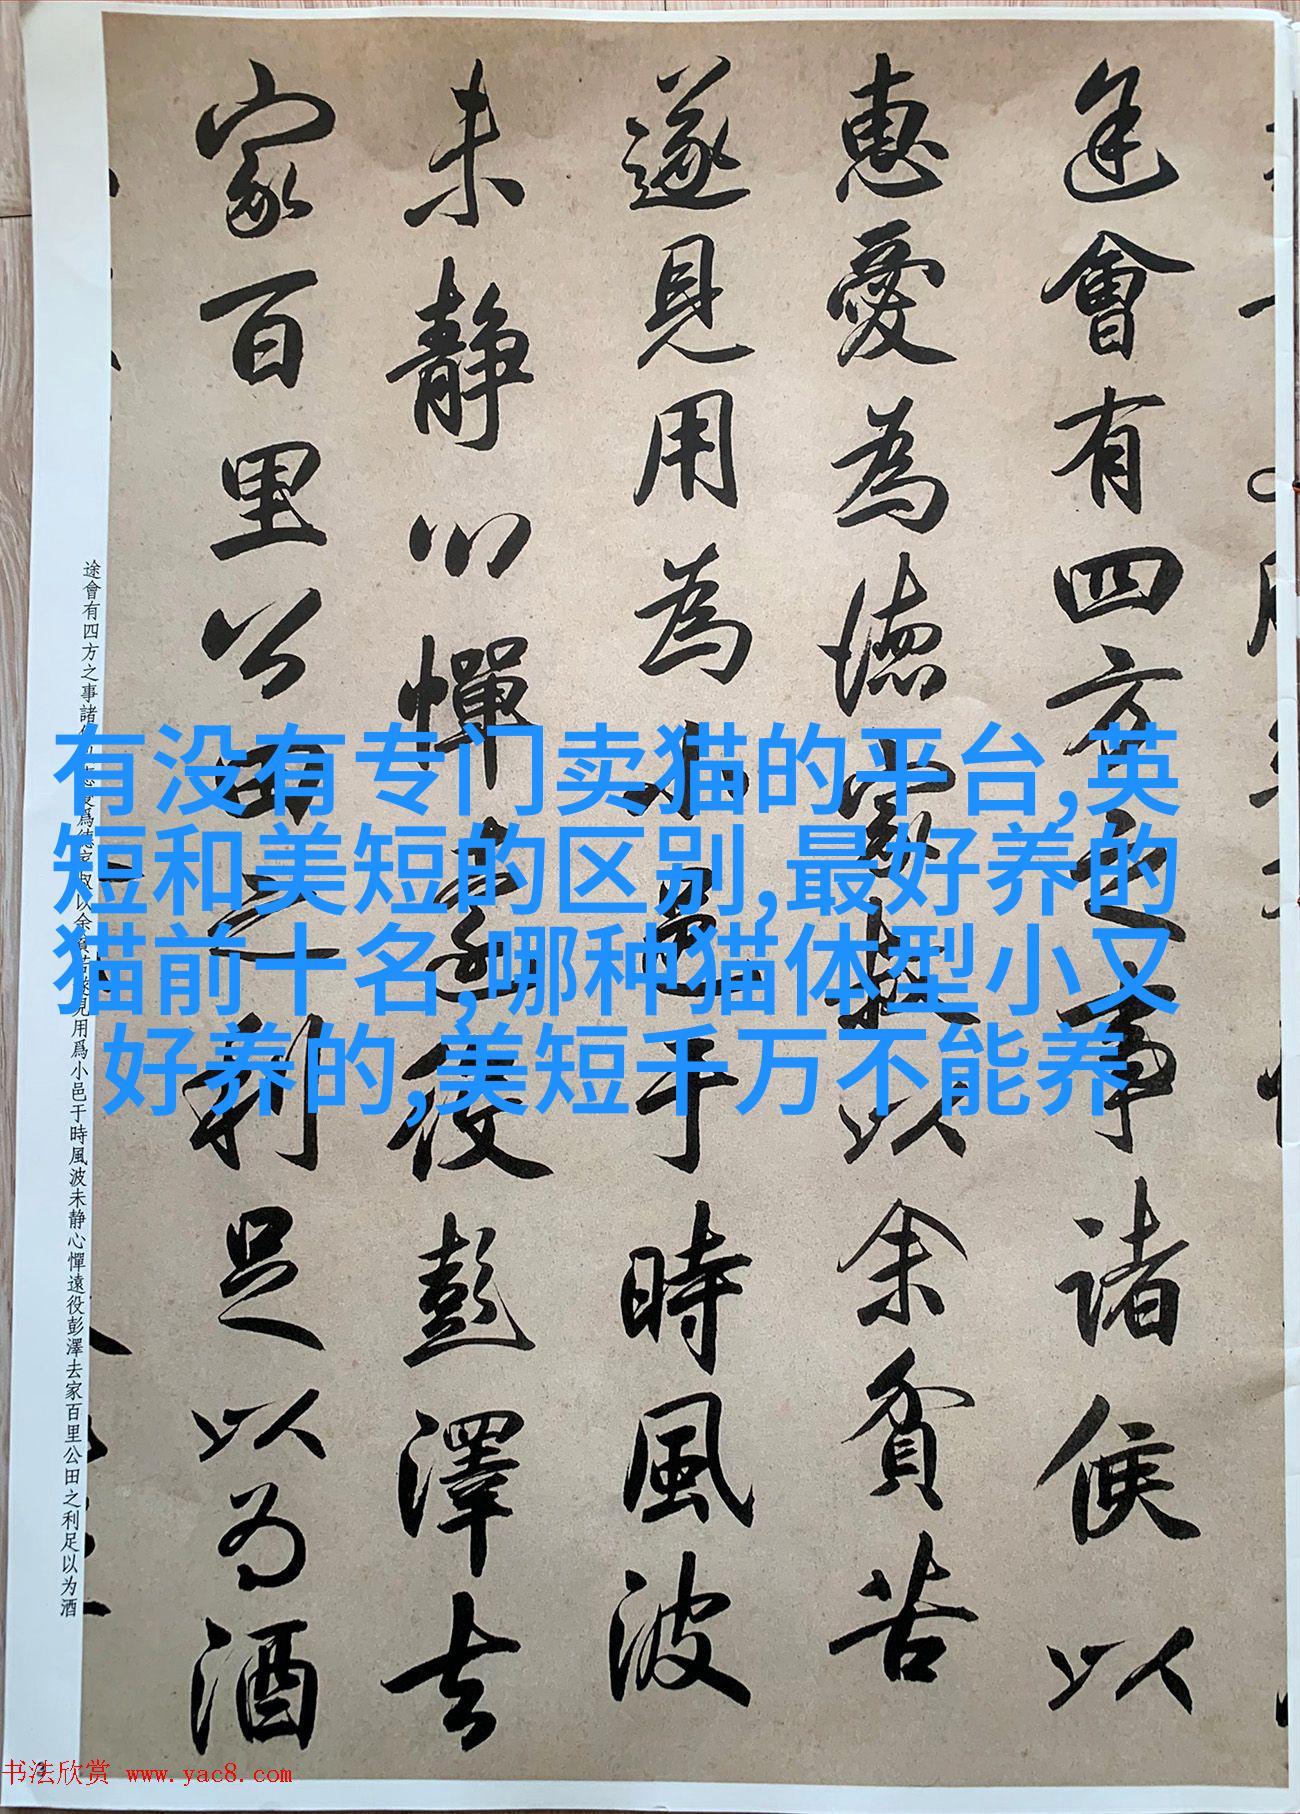 途會有四方之事諸侯以
惠愛為德家叔以余貧苦
遂見用為小邑于時風波
未静心憚遠役彭澤去
家百里公田之利足以为酒
途會有四方之事諸侯以惠愛爲德家叔以余貧苦遂見用爲小邑于時風波未静心憚遠役彭澤去家百里公田之利足以为酒
有没有专门卖猫的平台,英
短和美短的区别,最好养的
猫前十名,哪种猫体型小又
好养的,美短千万不能养
书法欣赏 www.yac8.com